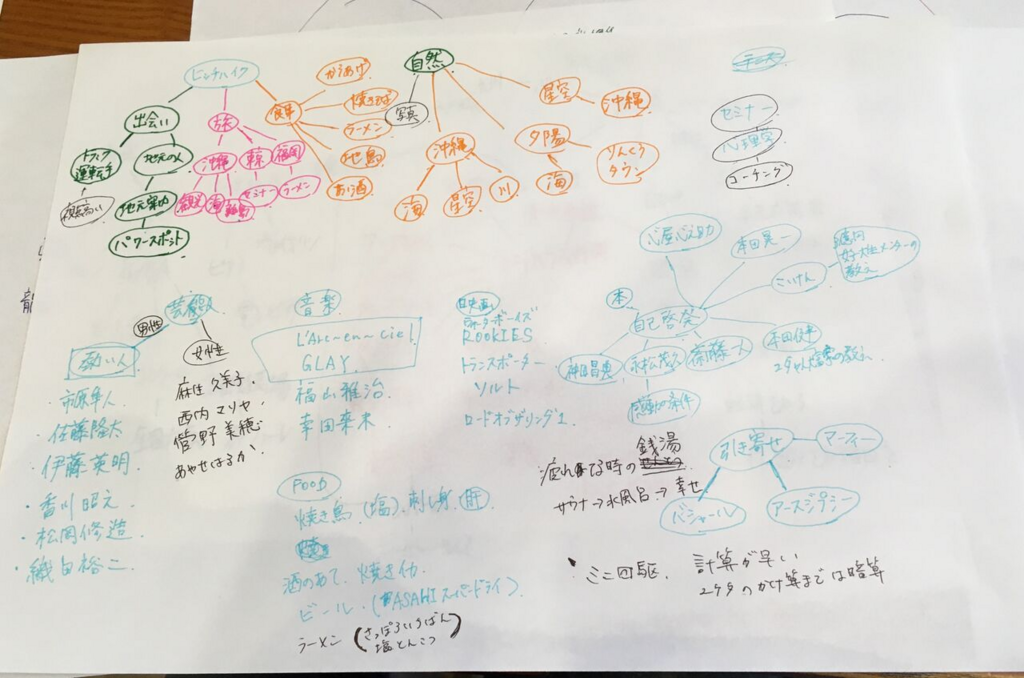 ヒッチハイク
出会い
トラック
運転手
視点高い
地元の人
地元案内
パワースポット
旅
沖縄
海
東京
セミナー
福岡
ラーメン
食事
からあげ
焼きそば
ラーメン
地鳥
お酒
自然
写真
沖縄
海
星空
川
夕陽
海
りんくう
タウン
星空
沖縄
セミナー
心理学
コーチング
芸能人
男性
熱い人
・市原隼人
・佐藤隆太
・伊藤英明
・香川昭之
・松岡修造
・織田裕二
女性
麻生久美子
西内マリヤ
菅野美穂
あやせはるか
音楽
L'Arc~en~ciel
GLAY
福山雅治
幸田来未
映画
ROOKIES
トランスポーター
ソルト
ロードオブザリング1
本
自己啓発
心屋仁之助
本田晃一
こいけん
億円
メンターの
教え
本田健
ユダヤ人大富豪の教え
斎藤一人
永松茂久
感動の条件
神田昌典
引き寄せ
マーフィー
アースジプシー
バシャール
疲れてる時の銭湯
サウナ→水風呂→幸せ
FOOD
焼き鳥(塩)、刺し身、肝
酒のあて、焼きイカ
ビール (ASAHIスーパードライ)
ラーメン (さっぽろいちばん
塩とんこつ)
・ミニ四駆
計算が早い
2ケタのかけ算までは暗算